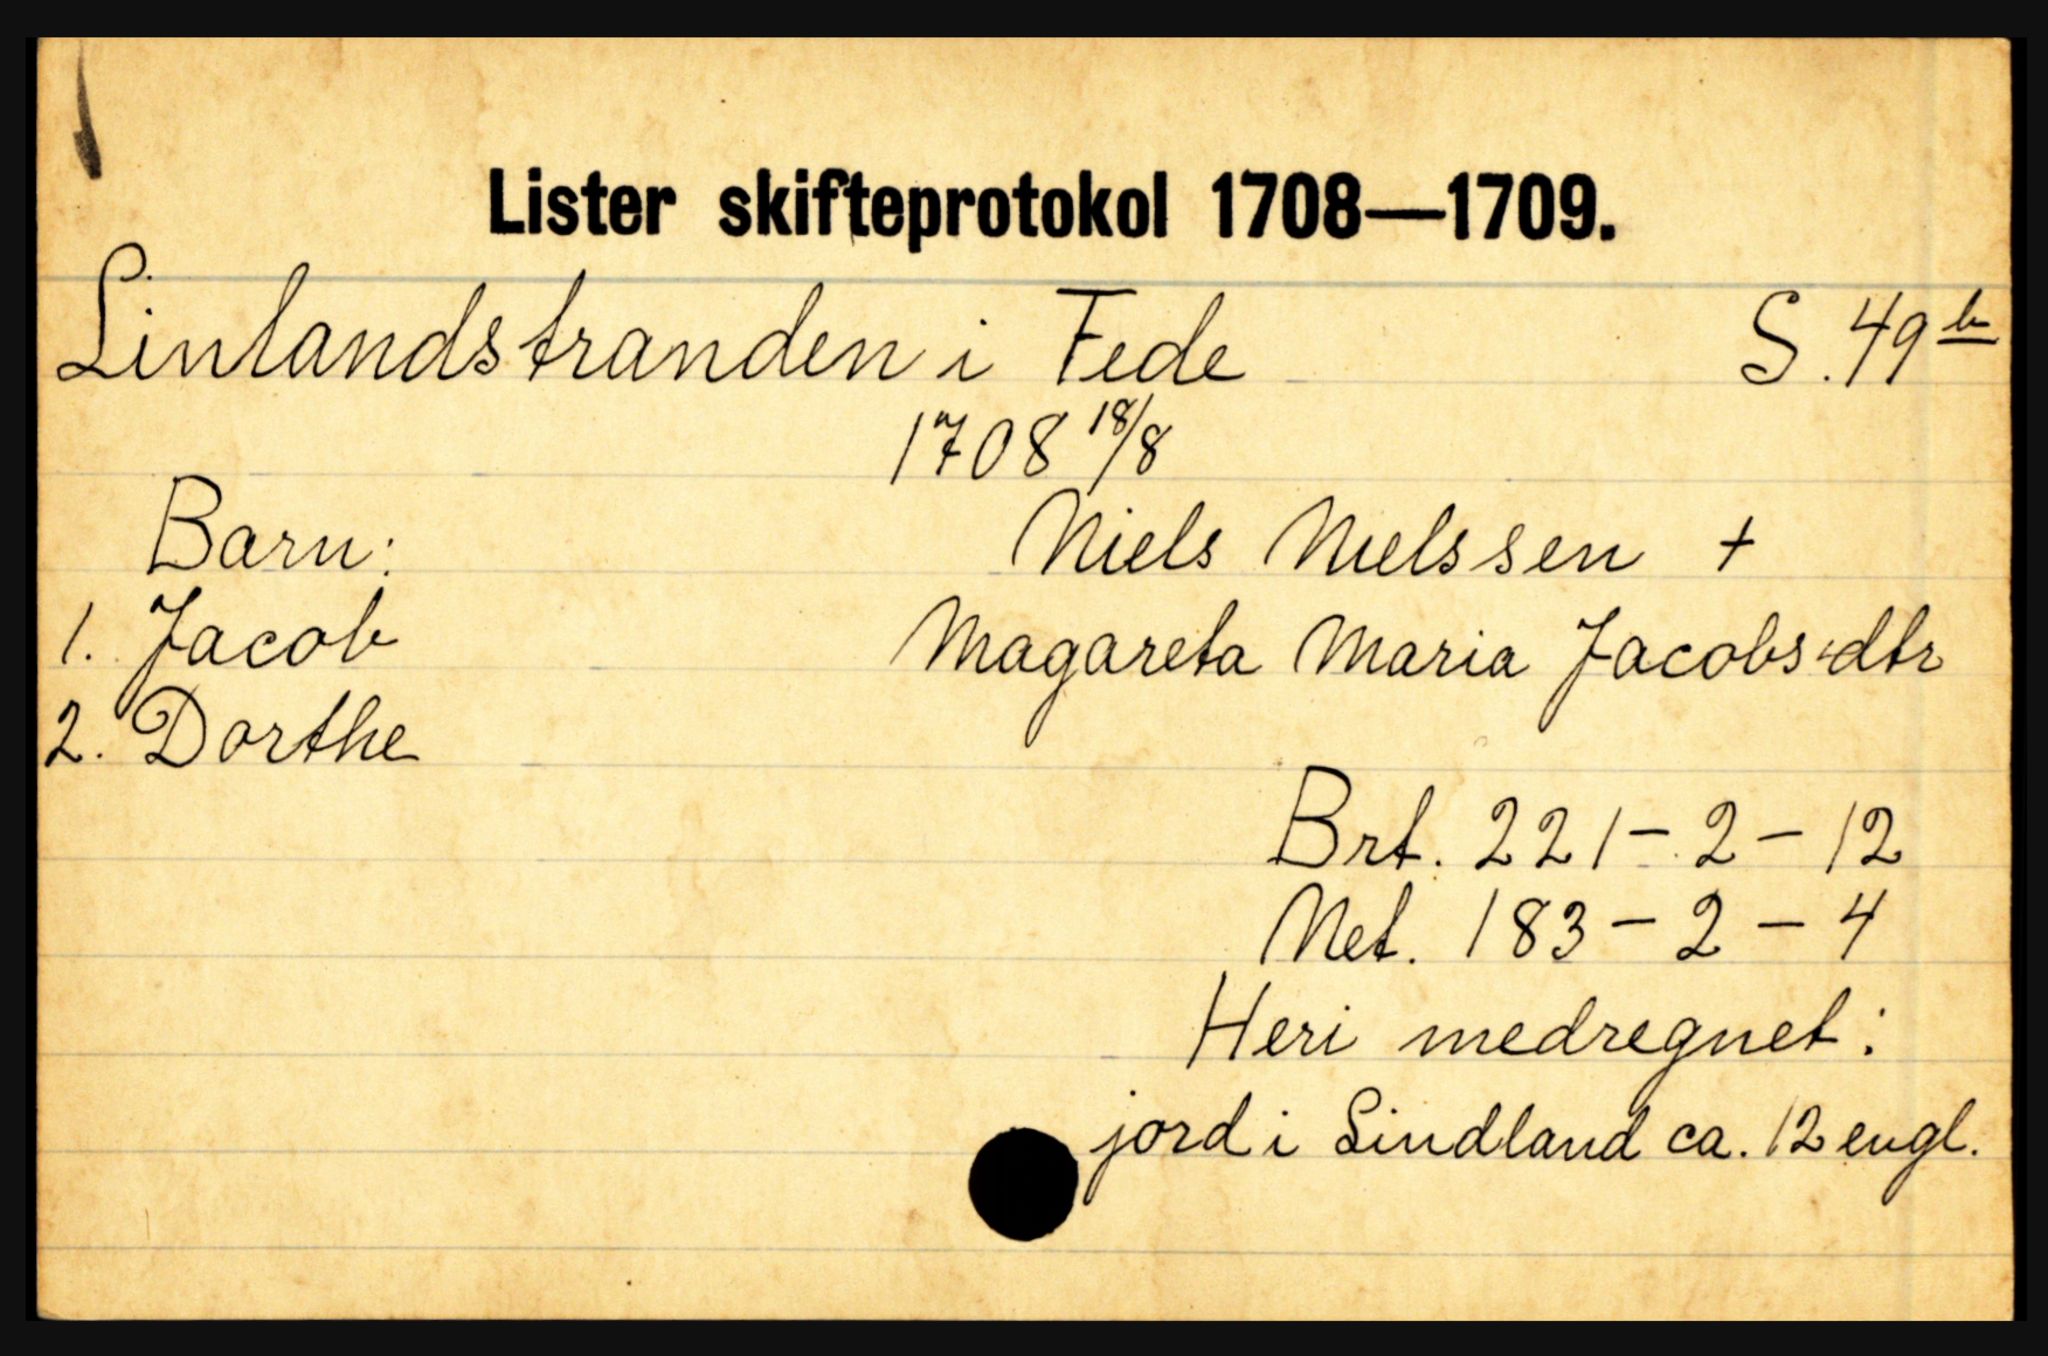 Lister skifteprotokol 1708—1709.
Linlandstranden i Fede S. 49 b
1708 18/8
Barn: Niels Nielssen +
1. Jacob Magareta Maria Jacobsdtr
2. Dorthe
Brt. 221 - 2 - 12
Net. 183 - 2 - 4
Heri medregnet:
jord i Lindland ca. 12 engl.